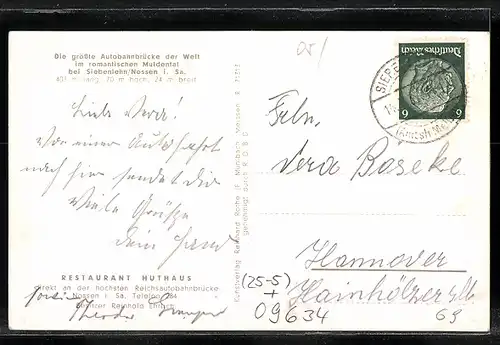 Die größte Autobahnbrücke der Welt
im romantischen Muldental
bei Siebenlehn/Nossen i. Sa.
401 m lang, 70 m hoch, 24 m breit
Liebe Vera!
Von einer Autofahrt
nach hier sendet dir
viele Grüsse
dein
RESTAURANT HUTHAUS
direkt an der höchsten Reichsautobahnbrücke
Nossen i. Sa. Telefon 284
Besitzer Reinhold Ehrlich
Kunstverlag Reinhard Rothe
genehmigt durch
Deutsches Reich
6 6
(Amtsh. Mei
Frln.
Vera Boseke
Hannover
Hainhölzerstr.
69
(25-5)
+
09634